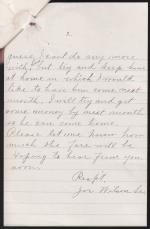 2.
guess I cant do any more
with but try and keep him
at home in which I would
like to have him come next
month. I will try and get
some money by next month
so he can come home.
Please let me know how
much the fare will cost
Hoping to hear from you
soon.
Respt.
Joe Wilson Sr